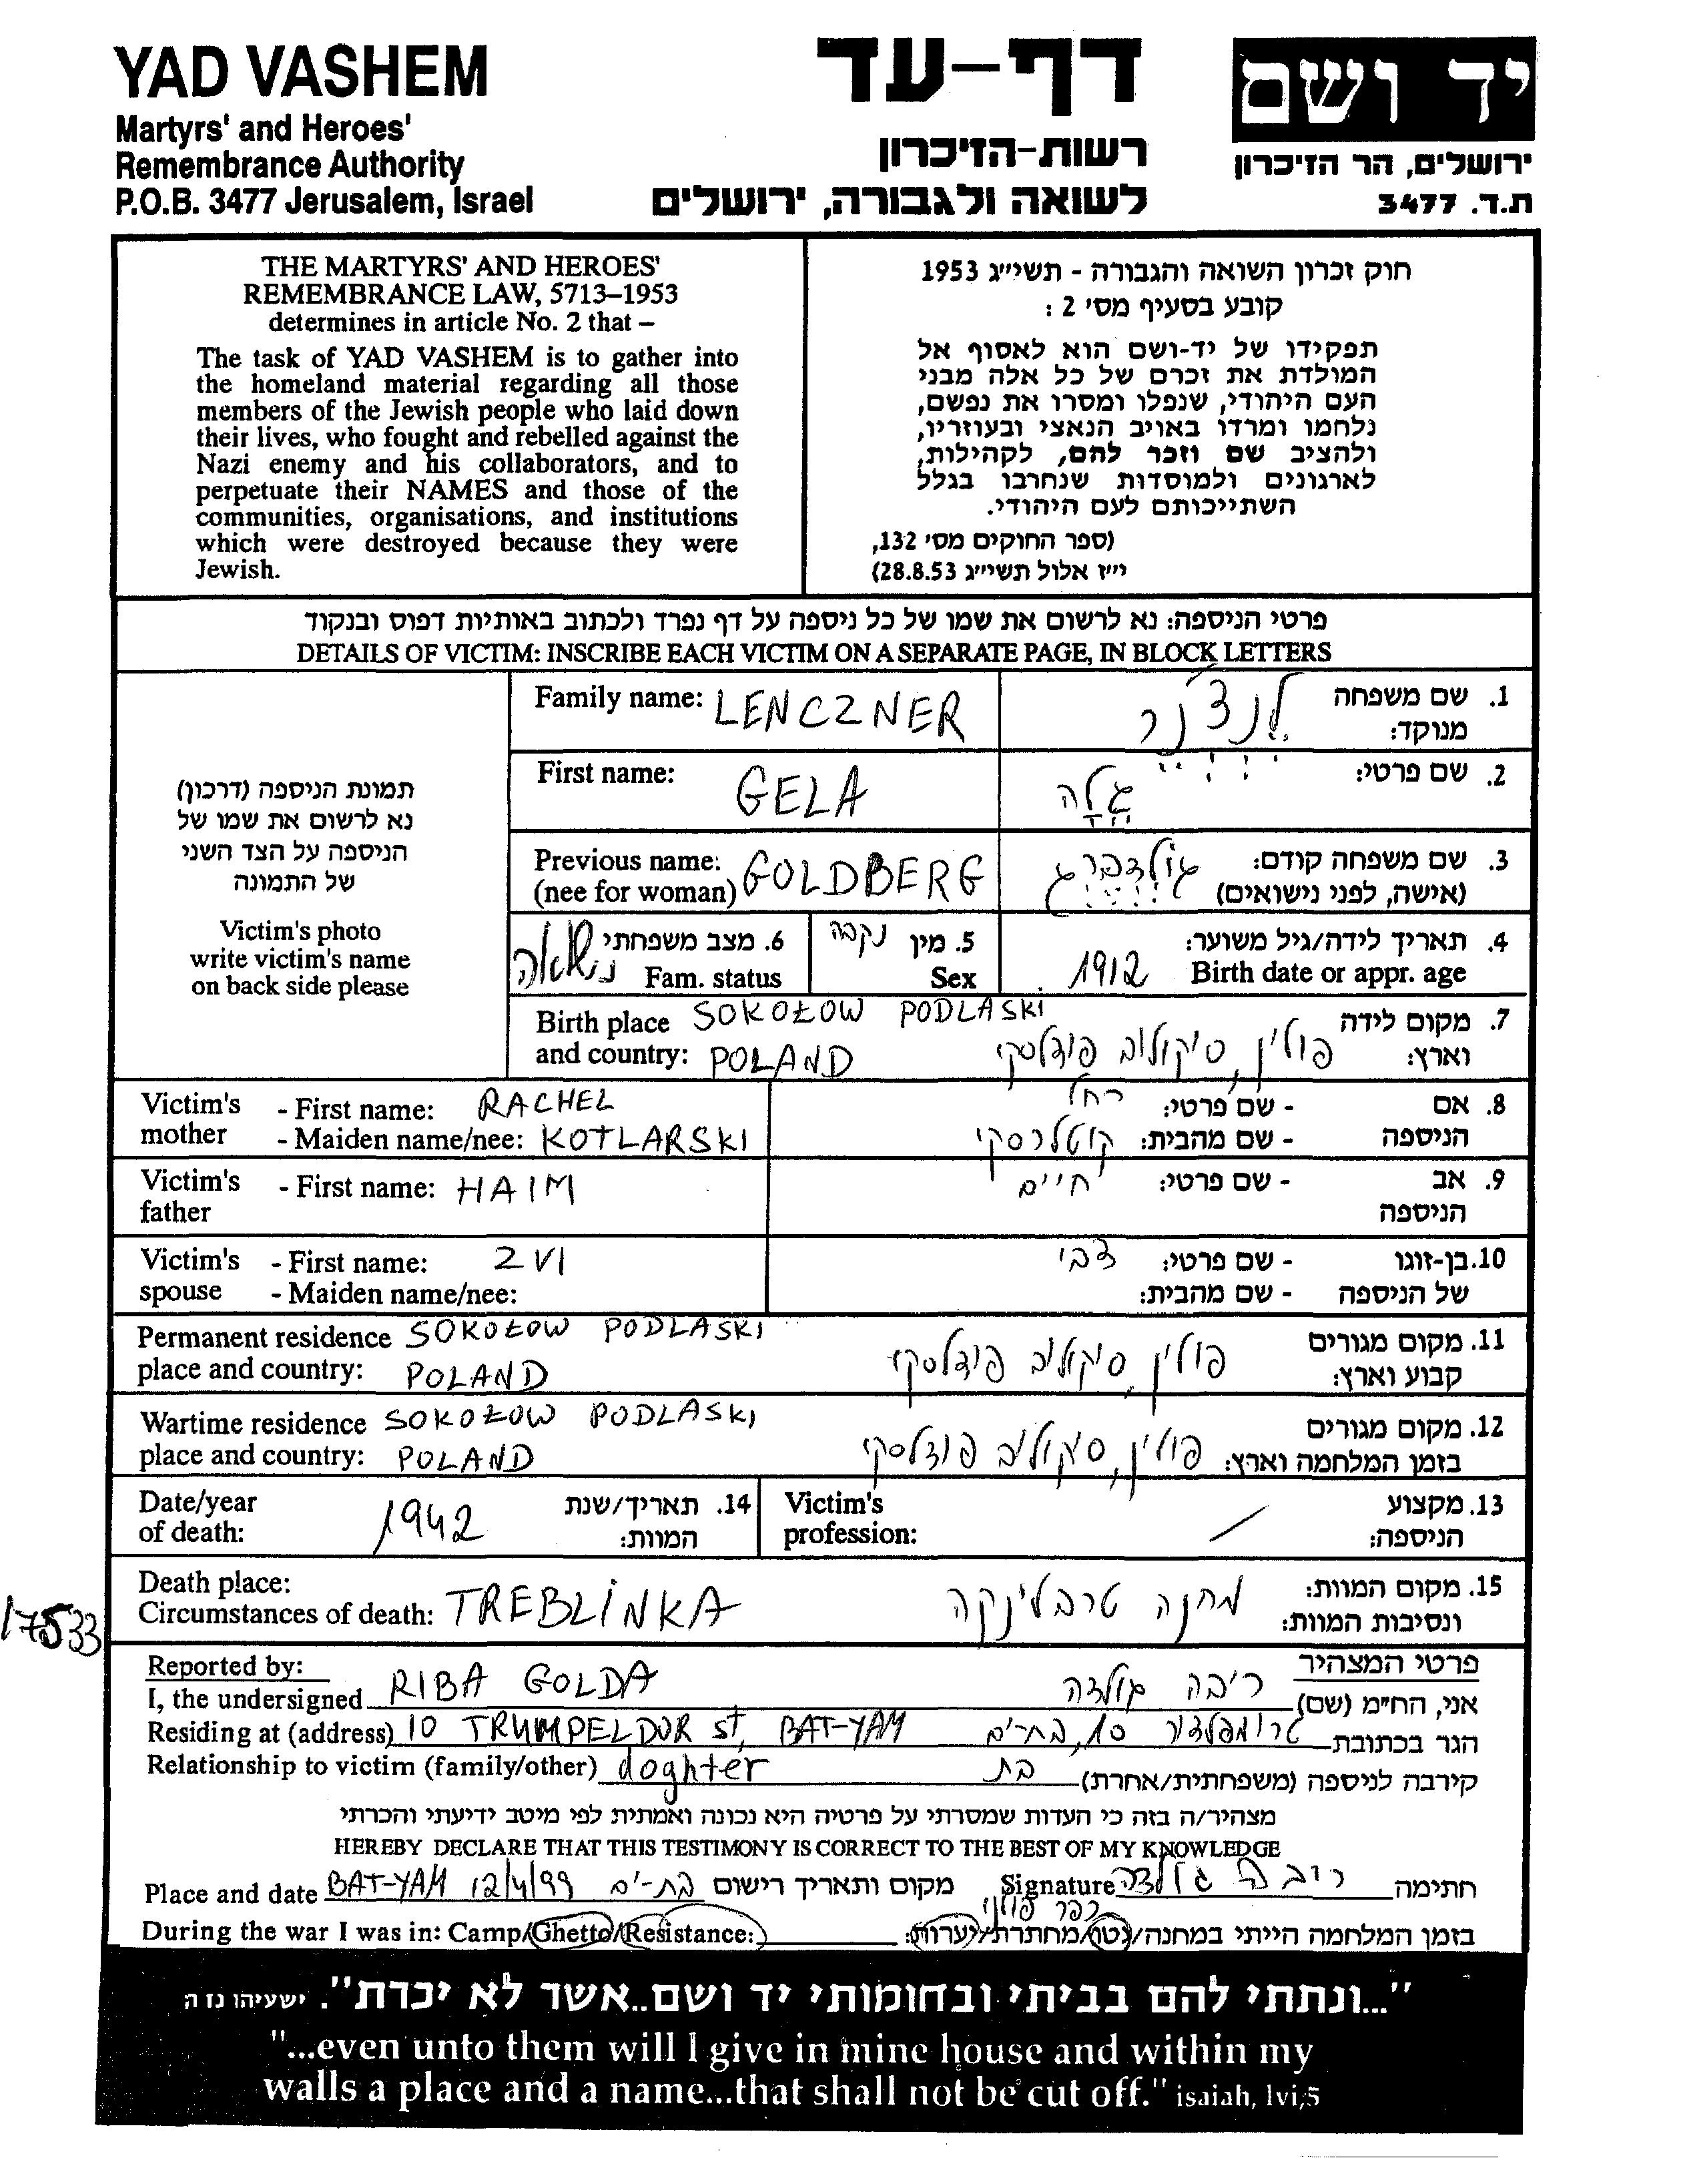 YAD VASHEM
Martyrs' and Heroes'
Remembrance Authority
P.O.B. 3477 Jerusalem, Israel
דף-עד
רשות-הזיכרון
לשואה ולגבורה, ירושלים
יד ושם
ירושלים, הר הזיכרון
ת.ד. 3477
THE MARTYRS' AND HEROES'
REMEMBRANCE LAW, 5713–1953
determines in article No. 2 that –
The task of YAD VASHEM is to gather into
the homeland material regarding all those
members of the Jewish people who laid down
their lives, who fought and rebelled against the
Nazi enemy and his collaborators, and to
perpetuate their NAMES and those of the
communities, organisations, and institutions
which were destroyed because they were
Jewish.
חוק זכרון השואה והגבורה - תשי״ג 1953
קובע בסעיף מס' 2 :
תפקידו של יד-ושם הוא לאסוף אל
המולדת את זכרם של כל אלה מבני
העם היהודי, שנפלו ומסרו את נפשם,
נלחמו ומרדו באויב הנאצי ובעוזריו,
ולהציב שם וזכר להם, לקהילות,
לארגונים ולמוסדות שנחרבו בגלל
השתייכותם לעם היהודי.
(ספר החוקים מס' 132,
י״ז אלול תשי״ג 28.8.53)
פרטי הניספה: נא לרשום את שמו של כל ניספה על דף נפרד ולכתוב באותיות דפוס ובנקוד
DETAILS OF VICTIM: INSCRIBE EACH VICTIM ON A SEPARATE PAGE, IN BLOCK LETTERS
תמונת הניספה (דרכון)
נא לרשום את שמו של
הניספה על הצד השני
של התמונה
Victim's photo
write victim's name
on back side please
Family name: LENCZNER
1. שם משפחה מנוקד: לנצ'נר
First name: GELA
2. שם פרטי: גלה
Previous name: (nee for woman) GOLDBERG
3. שם משפחה קודם: (אישה, לפני נישואים) גולדברג
4. תאריך לידה/גיל משוער: 1912
Birth date or appr. age
5. מין נקבה
Sex
6. מצב משפחתי נשואה
Fam. status
Birth place and country: SOKOŁOW PODLASKI POLAND
7. מקום לידה וארץ: פולין, סוקולוב פודלסקי
Victim's mother - First name: RACHEL
- Maiden name/nee: KOTLARSKI
8. אם הניספה - שם פרטי: רחל
- שם מהבית: קוטלרסקי
Victim's father - First name: HAIM
9. אב הניספה - שם פרטי: חיים
Victim's spouse - First name: ZVI
- Maiden name/nee:
10. בן-זוגו של הניספה - שם פרטי: צבי
- שם מהבית:
Permanent residence place and country: SOKOŁOW PODLASKI POLAND
11. מקום מגורים קבוע וארץ: פולין, סוקולוב פודלסקי
Wartime residence place and country: SOKOŁOW PODLASKI POLAND
12. מקום מגורים בזמן המלחמה וארץ: פולין, סוקולוב פודלסקי
Date/year of death: 1942
14. תאריך/שנת המוות:
Victim's profession: /
13. מקצוע הניספה:
Death place:
Circumstances of death: TREBLINKA
15. מקום המוות: ונסיבות המוות: מחנה טרבלינקה
17533
Reported by:
פרטי המצהיר
I, the undersigned RIBA GOLDA
אני, הח״מ (שם) ריבה גולדה
Residing at (address) 10 TRUMPELDOR st, BAT-YAM
הגר בכתובת טרומפלדור 10, בת-ים
Relationship to victim (family/other) doghter
קירבה לניספה (משפחתית/אחרת) בת
מצהיר/ה בזה כי העדות שמסרתי על פרטיה היא נכונה ואמתית לפי מיטב ידיעתי והכרתי
HEREBY DECLARE THAT THIS TESTIMONY IS CORRECT TO THE BEST OF MY KNOWLEDGE
Place and date BAT-YAM 12/4/99 בת-ים מקום ותאריך רישום
Signature ריבה גולדה חתימה
During the war I was in: Camp/Ghetto/Resistance:
כפר פולני
בזמן המלחמה הייתי במחנה/גטו/מחתרת/יערות:
"...ונתתי להם בביתי ובחומותי יד ושם..אשר לא יכרת". ישעיהו נו ה
"...even unto them will I give in mine house and within my
walls a place and a name...that shall not be cut off." isaiah, lvi,5